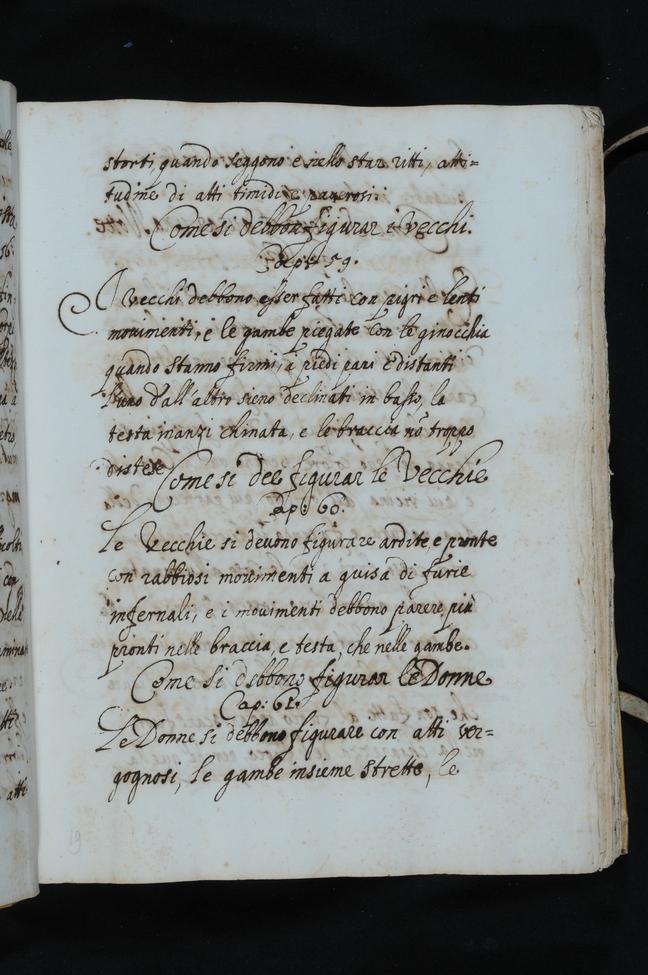 storti, quando seggono e nello star ritti, atti=
tudine di atti timidi e paurosi:
Come si debbon figurar i Vecchi.
Cap: 59.
I Vecchi debbono esser fatti con pigri e lenti
mouimenti, e le gambe piegate con le ginocchia
quando stanno firmi, à piedi pari e distanti
l'uno d'all'altro sieno declinati in basso, la
testa inanzi chinata, e le braccia nõ troppo
distese
Come si dee figurar le Vecchie
Cap: 60.
Le Vecchie si deuono figurare ardite, e pronte
con rabbiosi mouimenti a guisa di furie
infernali, e i mouimenti debbono parere più
pronti nelle braccia, e testa, che nelle gambe.
Come si debbono figurar le Donne
Cap: 61.
Le Donne si debbono figurare con atti ver=
gognosi, le gambe insieme strette, le
19